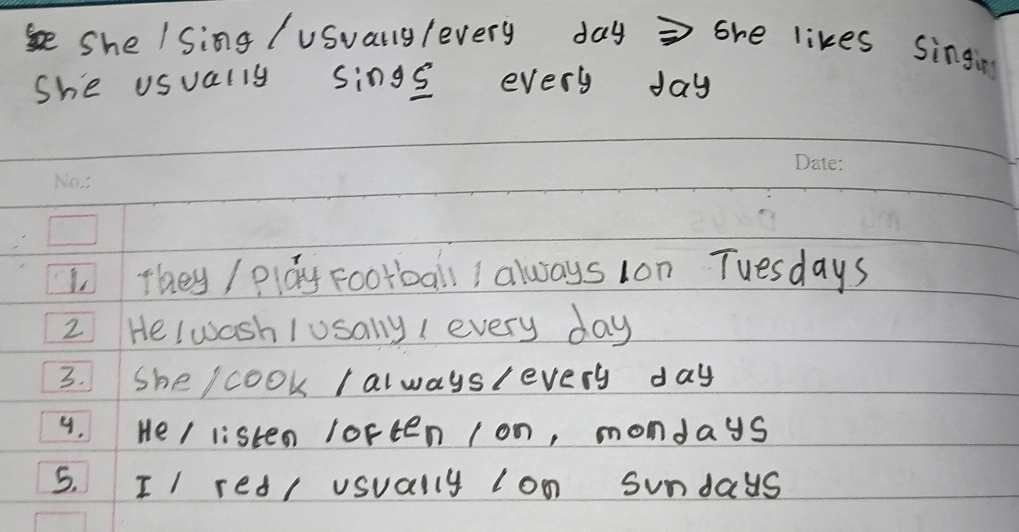 she / sing / usually / every day ⇒ she likes singing
She usually sings every day
No.: Date:
1. They / play football / always / on Tuesdays
2 He / wash / usally / every day
3. She / cook / always / every day
4. He / listen / often / on, mondays
5. I / red / usually / on sundays